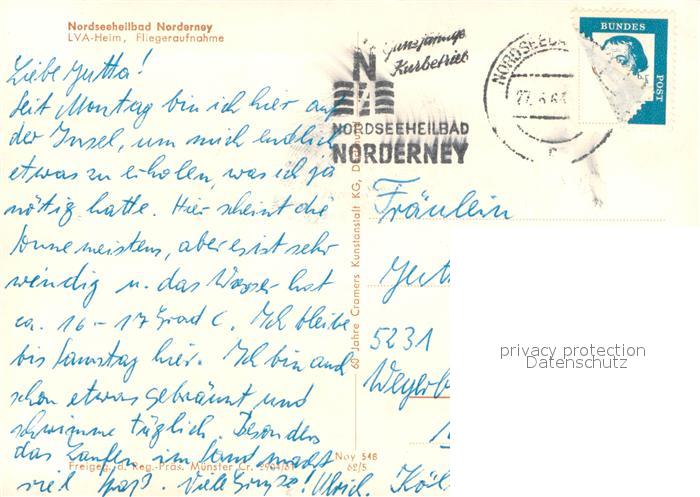 Nordseeheilbad Norderney
LVA-Heim, Fliegeraufnahme
Liebe Jutta!
Seit Montag bin ich hier auf
der Insel, um mich endlich
etwas zu erholen, was ich ja
nötig hatte. Hier scheint die
Sonne meistens, aber es ist sehr
windig u. das Wasser hat
ca. 16 - 17 Grad C. Ich bleibe
bis Samstag hier. Ich bin auch
schon etwas gebräunt und
schwimme täglich. Besonders
das Laufen im Sand macht
viel Spaß. Viele Grüsse! Ulrich.
Freigeg. d. Reg.-Präs. Münster Cr.
Noy 548
62/5
60 Jahre Cramers Kunstanstalt KG,
ganzjährige
Kurbetrieb
N
NORDSEEHEILBAD
NORDERNEY
NORDSEE
BUNDES
POST
Fräulein
Jutt
5231
Weyerb
Köl
privacy protection
Datenschutz